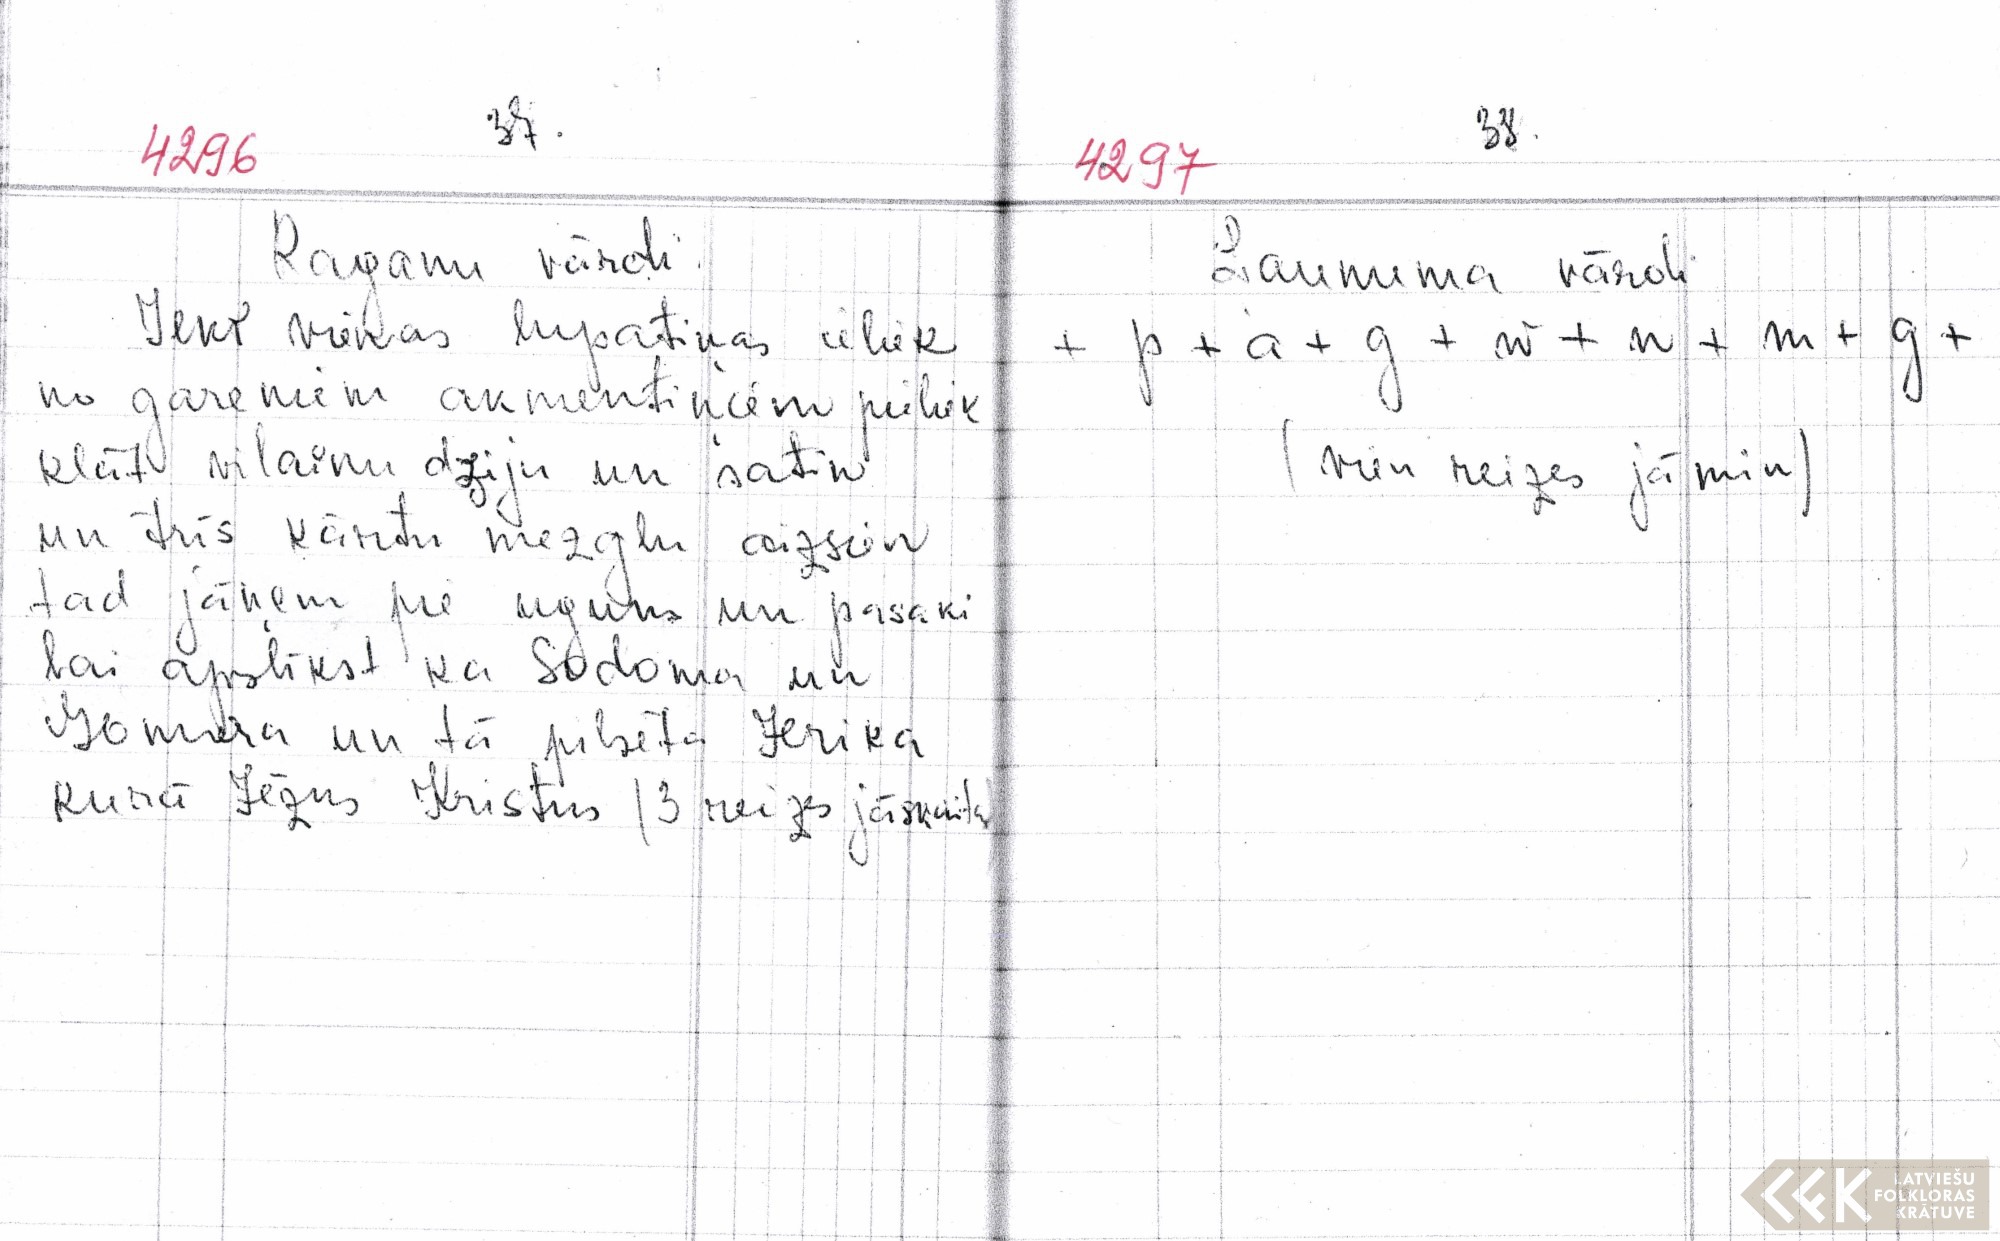 4296
37.
Raganu vārdi.
Iekš vienas lupatiņas ieliek
no gareniem akmentiņiem pieliek
klāt vilainu dziju un satin
un trīs kārtu mezglu aizsien
tad jāņem pie uguns un pasaki
lai apslīkst ka Sodoma un
Gomora un tā pilsēta Jerika
kurā Jēzus Kristus (3 reizes jāskaita)
4297
38.
Launuma vārdi
+ p + a + g + w + n + m + g +
(vien reizes jāmin)
LATVIEŠU
FOLKLORAS
KRĀTUVE